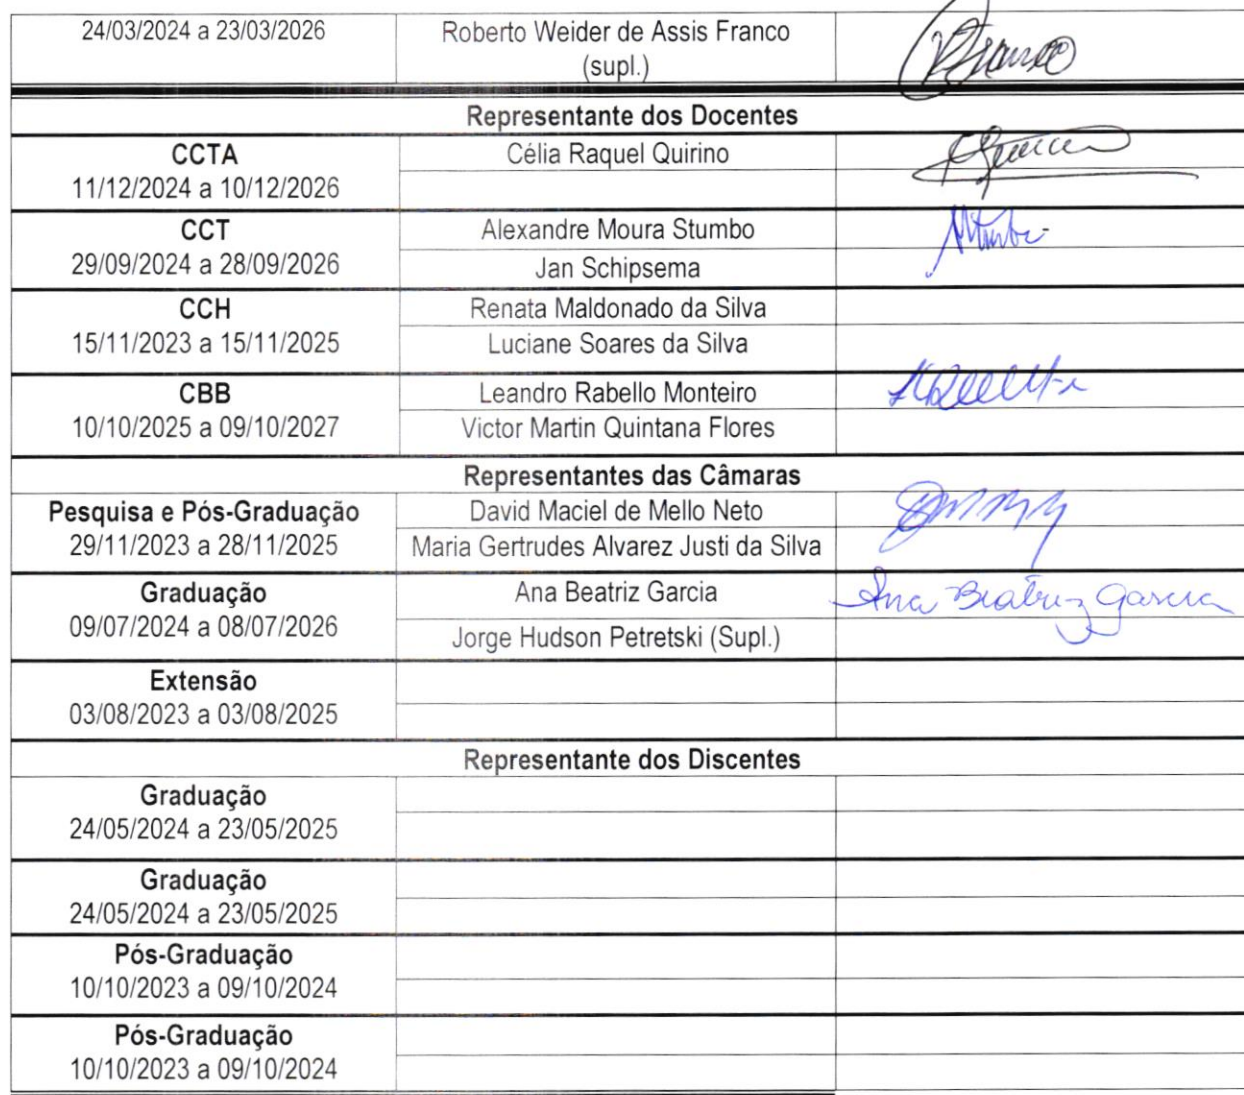 24/03/2024 a 23/03/2026
Roberto Weider de Assis Franco
(supl.)
Representante dos Docentes
CCTA
11/12/2024 a 10/12/2026
Célia Raquel Quirino
CCT
29/09/2024 a 28/09/2026
Alexandre Moura Stumbo
Jan Schipsema
CCH
15/11/2023 a 15/11/2025
Renata Maldonado da Silva
Luciane Soares da Silva
CBB
10/10/2025 a 09/10/2027
Leandro Rabello Monteiro
Victor Martin Quintana Flores
Representantes das Câmaras
Pesquisa e Pós-Graduação
29/11/2023 a 28/11/2025
David Maciel de Mello Neto
Maria Gertrudes Alvarez Justi da Silva
Graduação
09/07/2024 a 08/07/2026
Ana Beatriz Garcia
Ana Beatriz Garcia
Jorge Hudson Petretski (Supl.)
Extensão
03/08/2023 a 03/08/2025
Representante dos Discentes
Graduação
24/05/2024 a 23/05/2025
Graduação
24/05/2024 a 23/05/2025
Pós-Graduação
10/10/2023 a 09/10/2024
Pós-Graduação
10/10/2023 a 09/10/2024